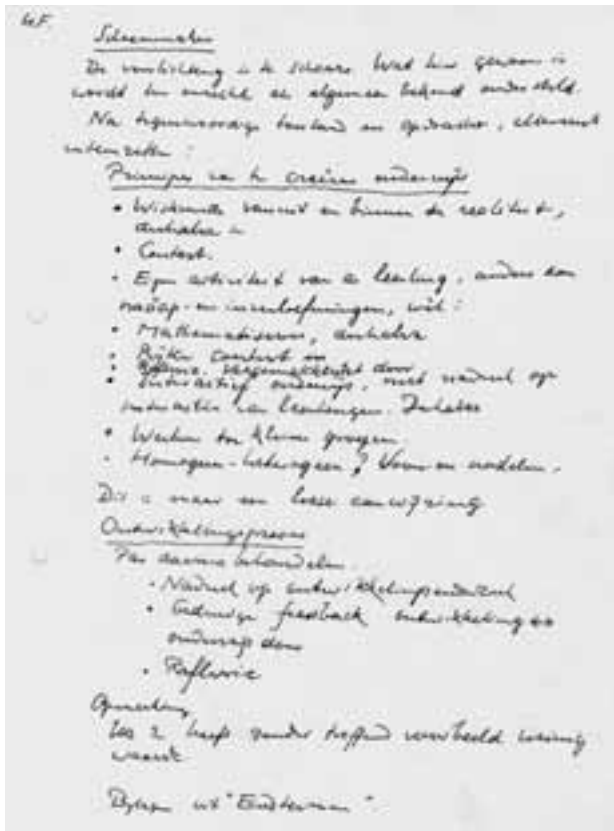 H.F.
De voorlichting is te schaars. Wat hier gewoon is
wordt ten onrechte als algemeen bekend ondersteld.
Na tegenwoordige toestand en opdracht,
uiteenzetten:
Principes van het onderwijs
• Wiskunde vanuit en binnen de realiteit,
derhalve in
• Context.
• Eigen activiteit van de leerling, anders dan
en invuloefeningen, wél:
• Mathematiseren, derhalve
• Rijke context en
vergemakkelijkt door
• Interactief onderwijs, met nadruk op
interactie van leerlingen. Derhalve
• Werken in kleine groepen.
• Homogeen-heterogeen? Voor en nadelen.
Dit is maar een losse aanwijzing
Ontwikkelingsproces
Pas daarna behandelen.
• Nadruk op ontwikkelingsonderzoek
• feedback ontwikkeling
• Reflexie
Opmerking
Les 2 heeft zonder treffend voorbeeld weinig
waarde